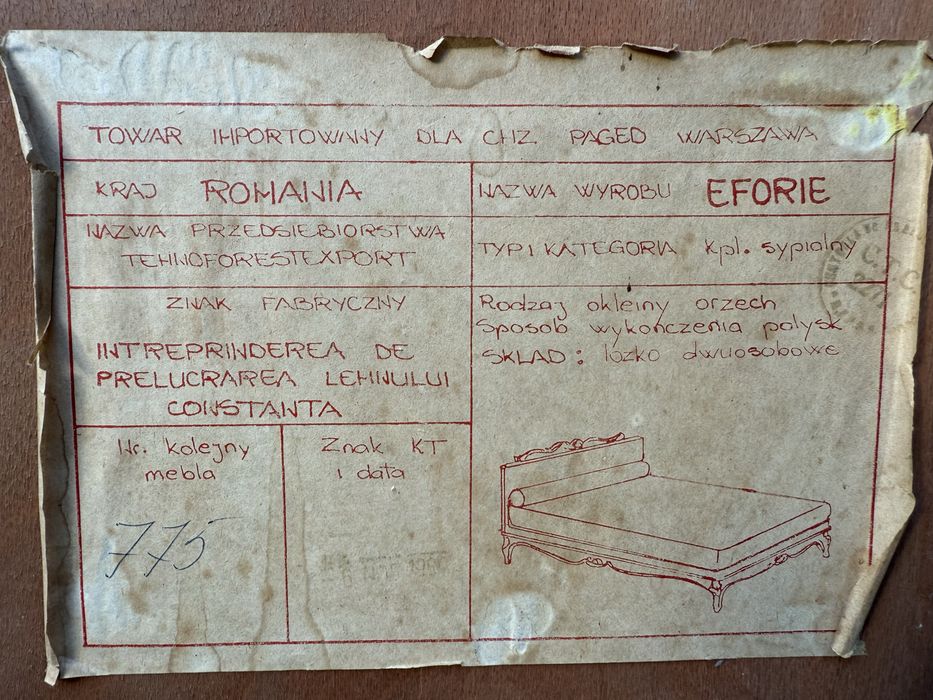 TOWAR IMPORTOWANY DLA CHZ. PAGED WARSZAWA
KRAJ ROMANIA
NAZWA WYROBU EFORIE
NAZWA PRZEDSIEBIORSTWA
TEHNOFORESTEXPORT
TYP I KATEGORIA kpl. sypialny
ZNAK FABRYCZNY
INTREPRINDEREA DE
PRELUCRAREA LEMNULUI
CONSTANTA
Rodzaj okleiny orzech
Sposob wykończenia połysk
SKLAD: lózko dwuosobowe
Nr. kolejny
mebla
775
Znak KT
i data